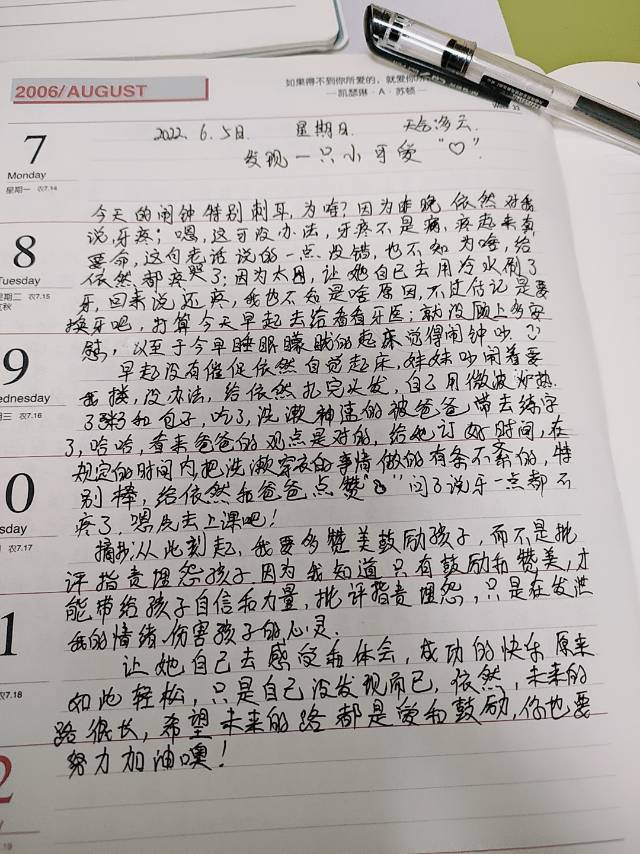 2006/AUGUST
如果得不到你所爱的，就爱你所
—凯瑟琳·A·苏顿—
7
Monday
星期一 农7.14
8
Tuesday
星期二 农7.15
立秋
9
Wednesday
三 农7.16
0
sday
农7.17
1
农7.18
2
2022.6.5日. 星期日. 天气:多云.
发现一只小牙宝“♡”.
今天的闹钟特别刺耳,为啥?因为昨晚依然对我
说,牙疼;嗯,这可没办法,牙疼不是病,疼起来真
要命,这句老话说的一点没错,也不知为啥,给
依然都疼哭了;因为太困,让她自己去用冷水刷了
牙,回来说还疼,我也不知是啥原因,不过估记是要
换牙吧,打算今天早起去给看看牙医;就没顾上多安
慰,以至于今早睡眼朦胧的起床觉得闹钟吵.
早起没有催促依然自觉起床,妹妹吵闹着要
我搂,没办法,给依然扎完头发,自己用微波炉热
了粥和包子,吃了,洗漱神速的被爸爸带去练字
了,哈哈,看来爸爸的观点是对的,给她订好时间,在
规定的时间内,把洗漱穿衣的事情做的有条不紊的,特
别棒,给依然和爸爸点赞“”问了说牙一点都不
疼了,嗯反去上课吧!
摘抄:从此刻起,我要多赞美鼓励孩子,而不是批
评指责埋怨孩子.因为我知道只有鼓励和赞美,才
能带给孩子自信和力量,批评指责埋怨,只是在发泄
我的情绪.伤害孩子的心灵.
让她自己去感受和体会,成功的快乐原来
如此轻松,只是自己没发现而已,依然,未来的
路很长,希望未来的路都是爱和鼓励,你也要
努力加油噢!